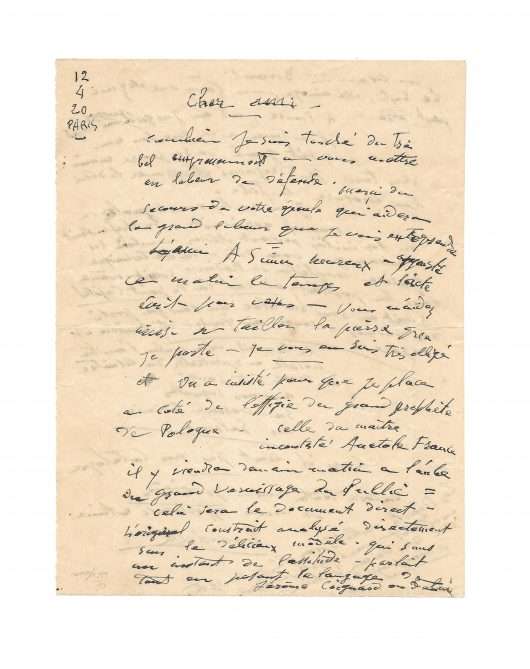 12
4
20
PARIS
Cher ami
combien je suis touché du tra
en labeur de défende. merci du
secours de votre qui aidera
le grand labeur que je vais entreprendre
A
ce matin le temps et
écrit pour vous — Vous m'aidez
en taillon la pierre que
je porte — je vous en suis très obligé
et on a insisté pour que je place
a coté de l'effigie du grand prophète
de Pologne — celle du maître
incontesté Anatole France
il y viendra demain matin a l'aube
du grand Vernissage du Public =
celà sera le document direct —
L'original construit analysé directement
sous le délicieux modèle. qui sans
un instant de lassitude — parlait
tout en posant le langage de
Jérôme Coignard ou